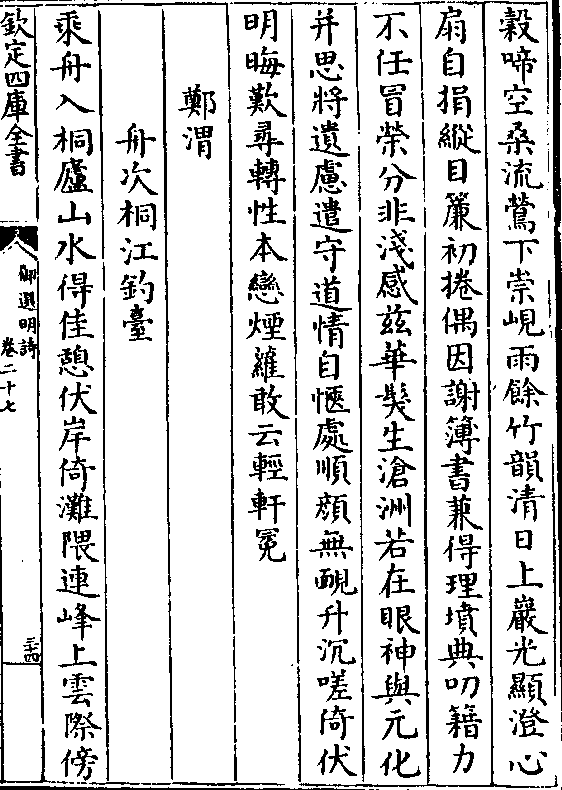 穀啼空桑流鶯下崇峴雨餘竹韻清日上巖光顯澄心
扇自捐縱目簾初捲偶因謝簿書兼得理墳典叨籍力
不任冒榮分非淺感茲華髮生滄洲若在眼神與元化
并思將遺慮遣守道情自愜處順顔無靦升沉嗟倚伏
明晦歎尋轉性本戀煙蘿敢云輕軒冕
鄭渭
舟次桐江釣臺
乘舟入桐廬山水得佳憩伏岸倚灘隈連峰上雲際傍
欽定四庫全書
御選明詩
卷二十七
三十四